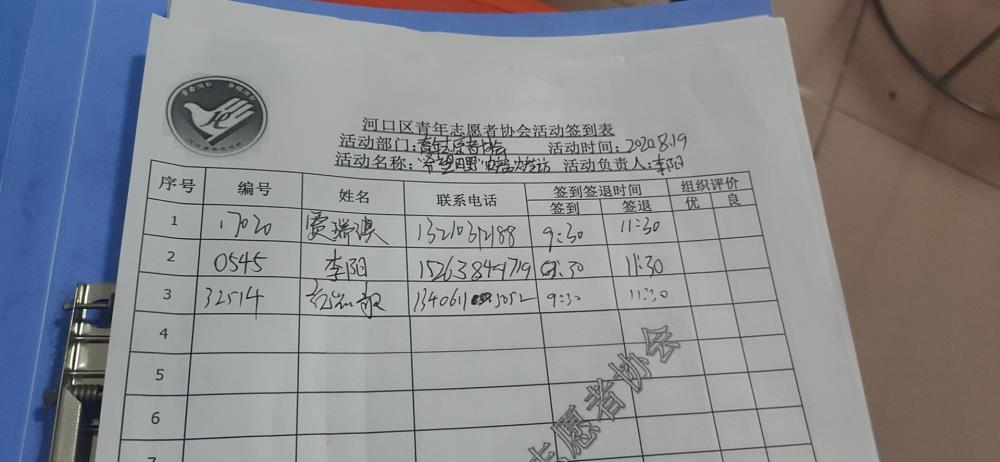 河口区青年志愿者协会活动签到表
活动部门:青年志愿者协会 活动时间: 2020.8.19
活动名称: 活动负责人:李阳
序号 编号 姓名 联系电话 签到签退时间 组织评价
签到 签退 优 良
1 17020 贾瑞滨 13210312188 9:30 11:30
2 0545 李阳 15263849719 9:30 11:30
3 32514 9:30 11:30
4
5
6
7
志愿者协会